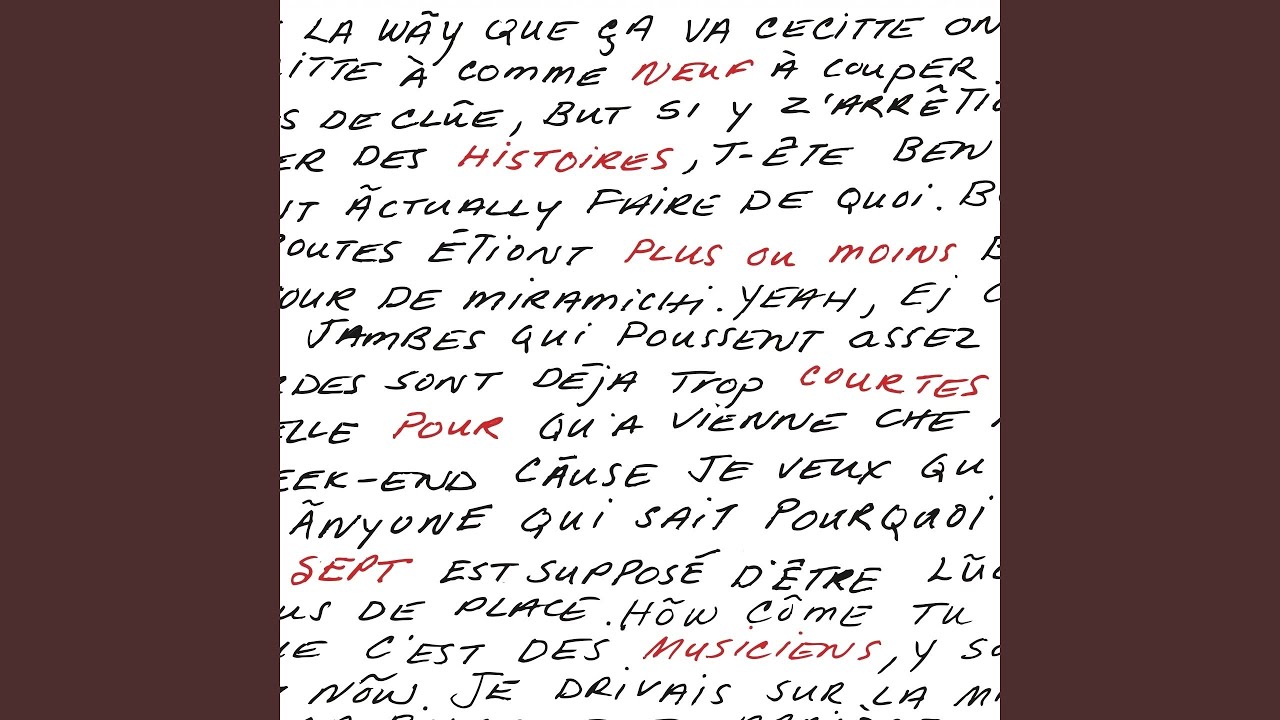 LA WÃY QUE ÇA VA CECITTE ON
ITTE À COMME NEUF À COUPER.
S DE CLÛE, BUT SI Y Z'ARRÊTIO
ER DES HISTOIRES, T-ÊTE BEN
NT ÃCTUALLY FAIRE DE QUOI. B
ROUTES ÉTIONT PLUS OU MOINS B
OUR DE MIRAMICHI. YEAH, EJ
JAMBES QUI POUSSENT ASSEZ
RDES SONT DÉJA TROP COURTES
ELLE POUR QU'A VIENNE CHE
EEK-END CÃUSE JE VEUX QU
ÃNYONE QUI SAIT POURQUOI
SEPT EST SUPPOSÉ D'ÊTRE LŨC
US DE PLACE. HÕW CÔME TU
UE C'EST DES MUSICIENS, Y SO
NÕW. JE DRIVAIS SUR LA M